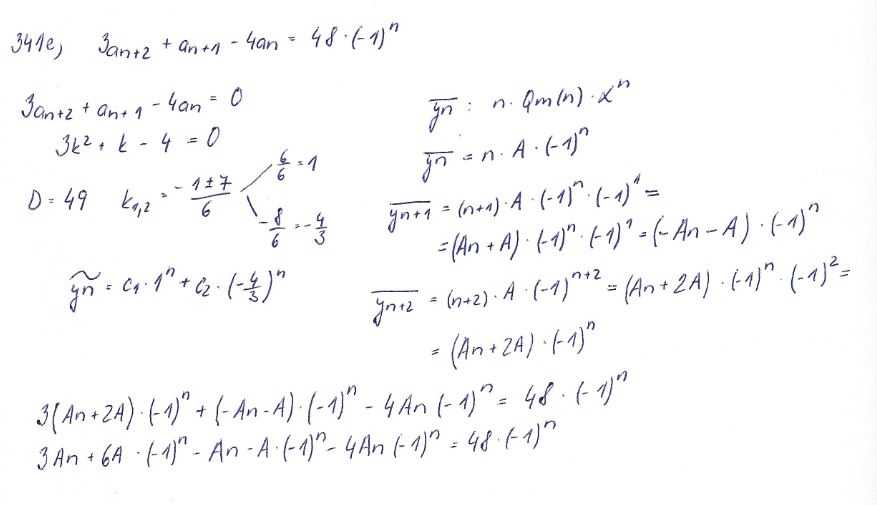 341e) 3an+2 + an+1 - 4an = 48 · (-1)^n
3an+2 + an+1 - 4an = 0
3k² + k - 4 = 0
D = 49 k1,2 = (-1 ± 7)/6
6/6 = 1
-8/6 = -4/3
ỹn = C1 · 1^n + C2 · (-4/3)^n
y̅n : n · Qm(n) · α^n
y̅n = n · A · (-1)^n
y̅n+1 = (n+1) · A · (-1)^n · (-1)^1 =
= (An + A) · (-1)^n · (-1)^1 = (-An - A) · (-1)^n
y̅n+2 = (n+2) · A · (-1)^n+2 = (An + 2A) · (-1)^n · (-1)^2 =
= (An + 2A) · (-1)^n
3(An + 2A) · (-1)^n + (-An - A) · (-1)^n - 4An (-1)^n = 48 · (-1)^n
3An + 6A · (-1)^n - An - A · (-1)^n - 4An (-1)^n = 48 · (-1)^n